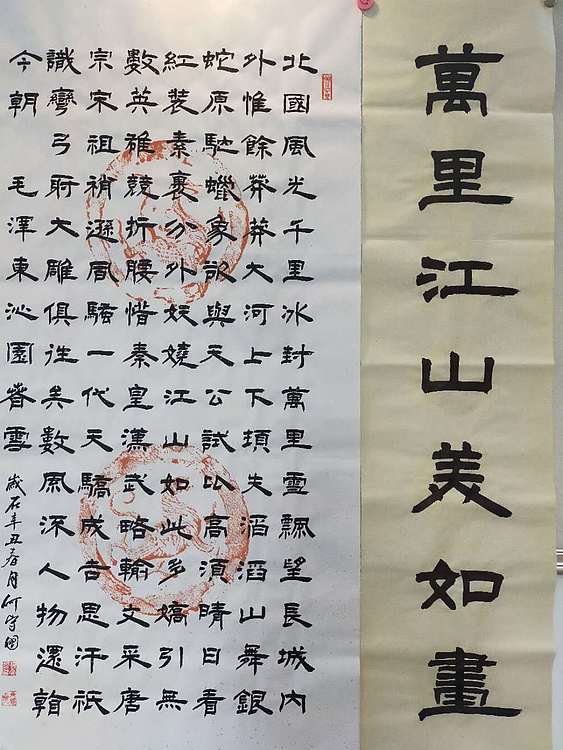 萬里江山美如畫
北國風光千里冰封萬里雪飄望長城内
外惟餘莽莽大河上下頓失滔滔山舞銀
蛇原馳蠟象欲與天公試比高須晴日看
紅裝素裹分外妖嬈江山如此多嬌引無
數英雄競折腰惜秦皇漢武略輸文采唐
宗宋祖稍遜風騷一代天驕成吉思汗祇
識彎弓射大雕俱往矣數風流人物還看
今朝 毛澤東沁園春雪 歲在辛丑春月何守國